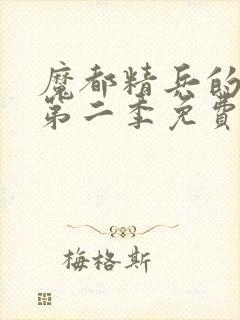 魔都精兵的
第二季免費
梅格斯